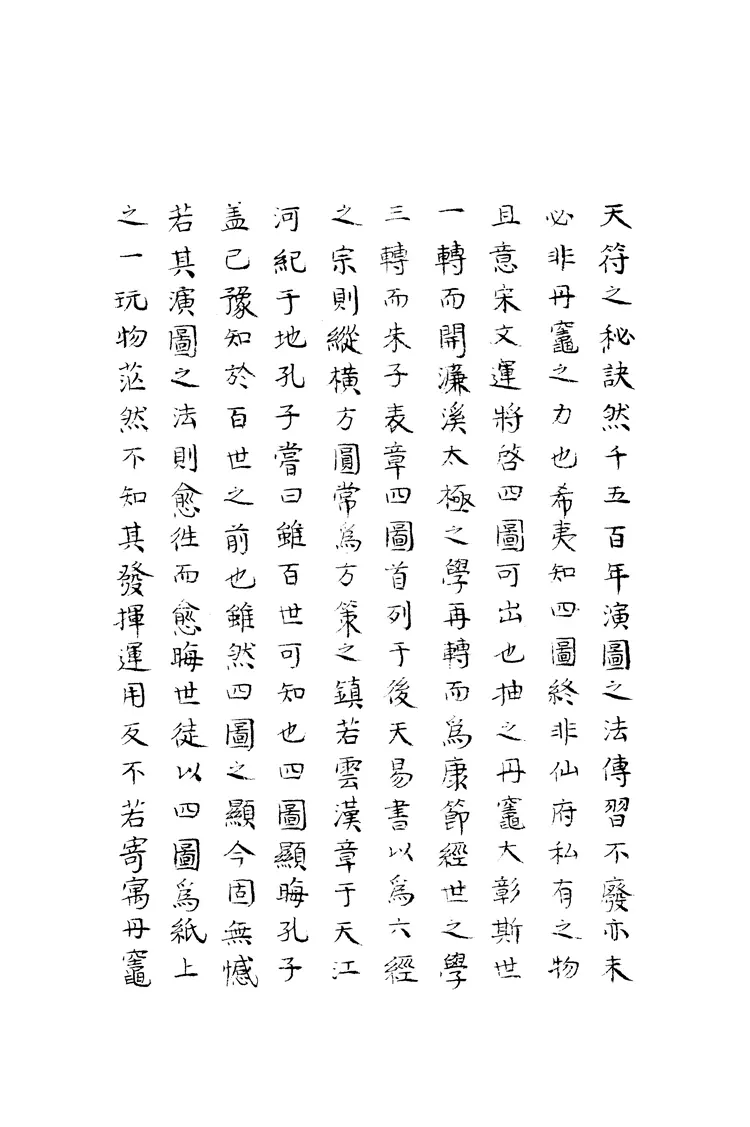 天符之秘訣然千五百年演圖之法傳習不廢亦未
必非丹竈之力也希夷知四圖終非仙府私有之物
且意宋文運將啓四圖可出也抽之丹竈大彰斯世
一轉而開濂溪太極之學再轉而爲康節經世之學
三轉而朱子表章四圖首列于後天易書以爲六經
之宗則縱横方圓常爲方策之鎮若雲漢章于天江
河紀于地孔子嘗曰雖百世可知也四圖顯晦孔子
盖已豫知於百世之前也雖然四圖之顯今固無憾
若其演圖之法則愈徃而愈晦世徒以四圖爲紙上
之一玩物茫然不知其發揮運用反不若寄寓丹竈